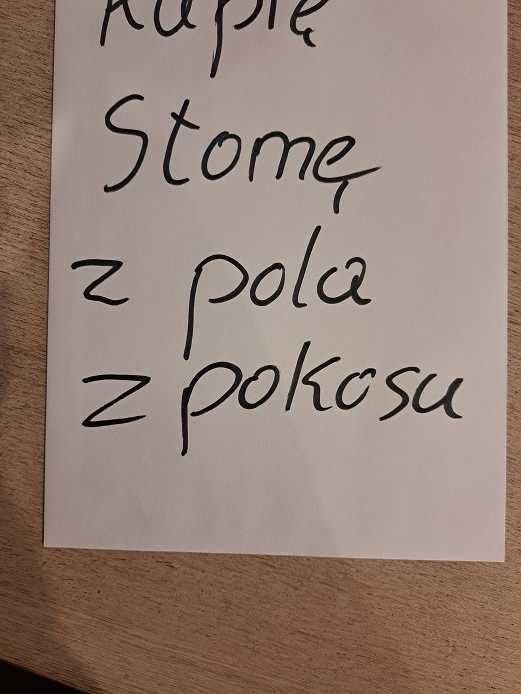 Kupię
Stomę
z pola
z pokosu